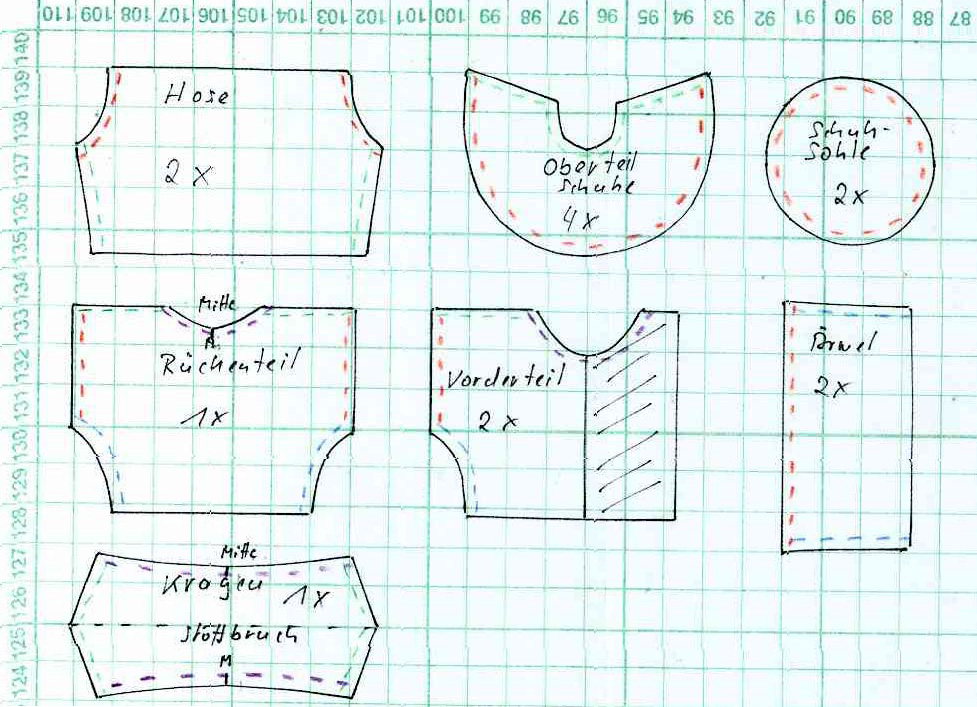 110 109 108 107 106 105 104 103 102 101 100 99 98 97 96 95 94 93 92 91 90 89 88 87
140
139
138
137
136
135
134
133
132
131
130
129
128
127
126
125
124
Hose
2 x
Oberteil
Schuhe
4x
Schuh-
Sohle
2x
Mitte
Rückenteil
1x
Vorderteil
2 x
Ärmel
2x
Mitte
Kragen
1x
Stoffbruch
M